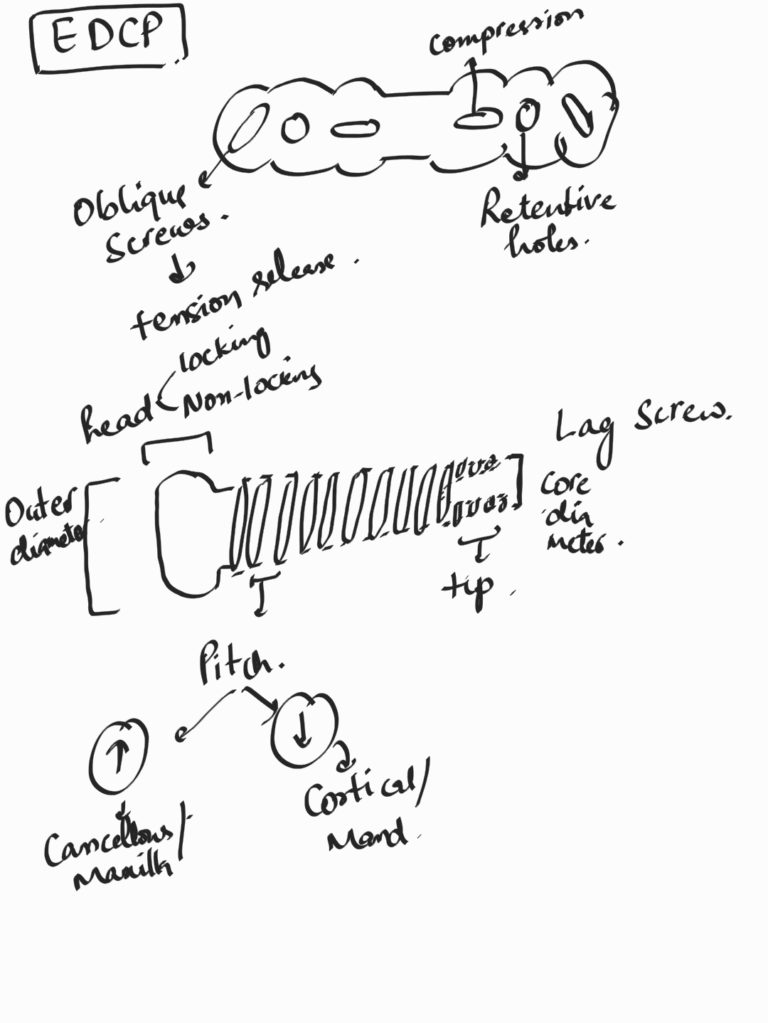 EDCP
compression
Oblique
Screws.
Retentive
holes.
tension release.
head
locking
Non-locking
Lag Screw.
Outer
diameter
core
dia
meter.
tip.
Pitch.
↑
↓
Cancellous/
Maxilla
Cortical/
Mand.